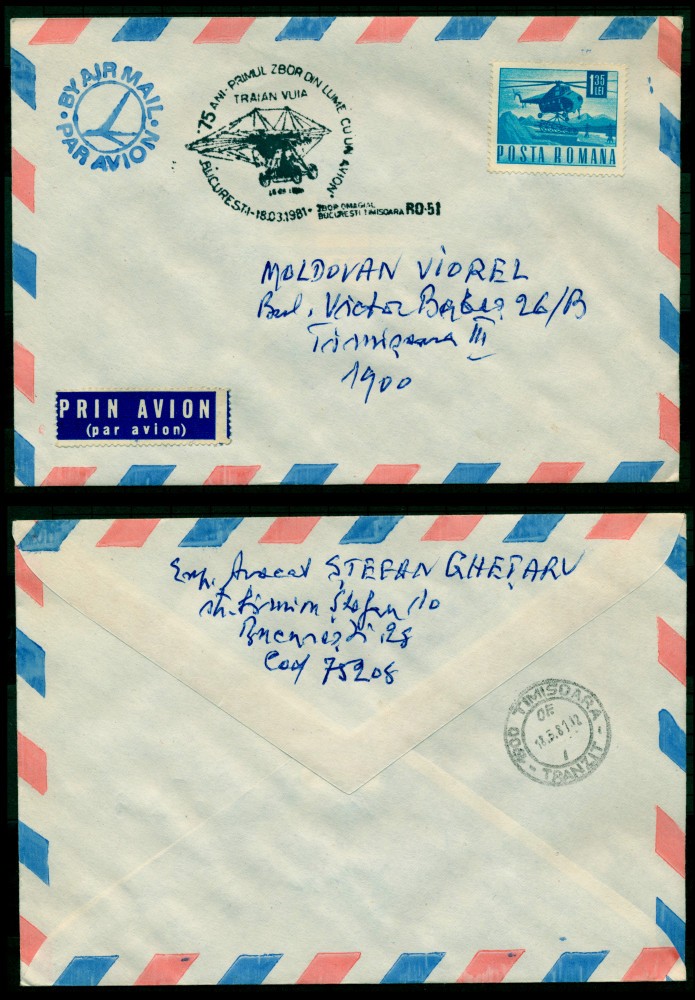 BY AIR MAIL
PAR AVION
"75 ANI-PRIMUL ZBOR DIN LUME CU UN AVION"
TRAIAN VUIA
BUCUREŞTI-18.03.1981-
ZBOR OMAGIAL
BUCUREŞTI TIMISOARA RO-51
1.35
LEI
POSTA ROMANA
MOLDOVAN VIOREL
Bul. Victor Babeş 26/B
Timişoara III
1900
PRIN AVION
(par avion)
Exp. Avocat ŞTEFAN GHEŢARU
str. Ştefan 10
Bucureşti 28
Cod 75208
TIMISOARA
OF
18.3.81.12
1
TRANZIT